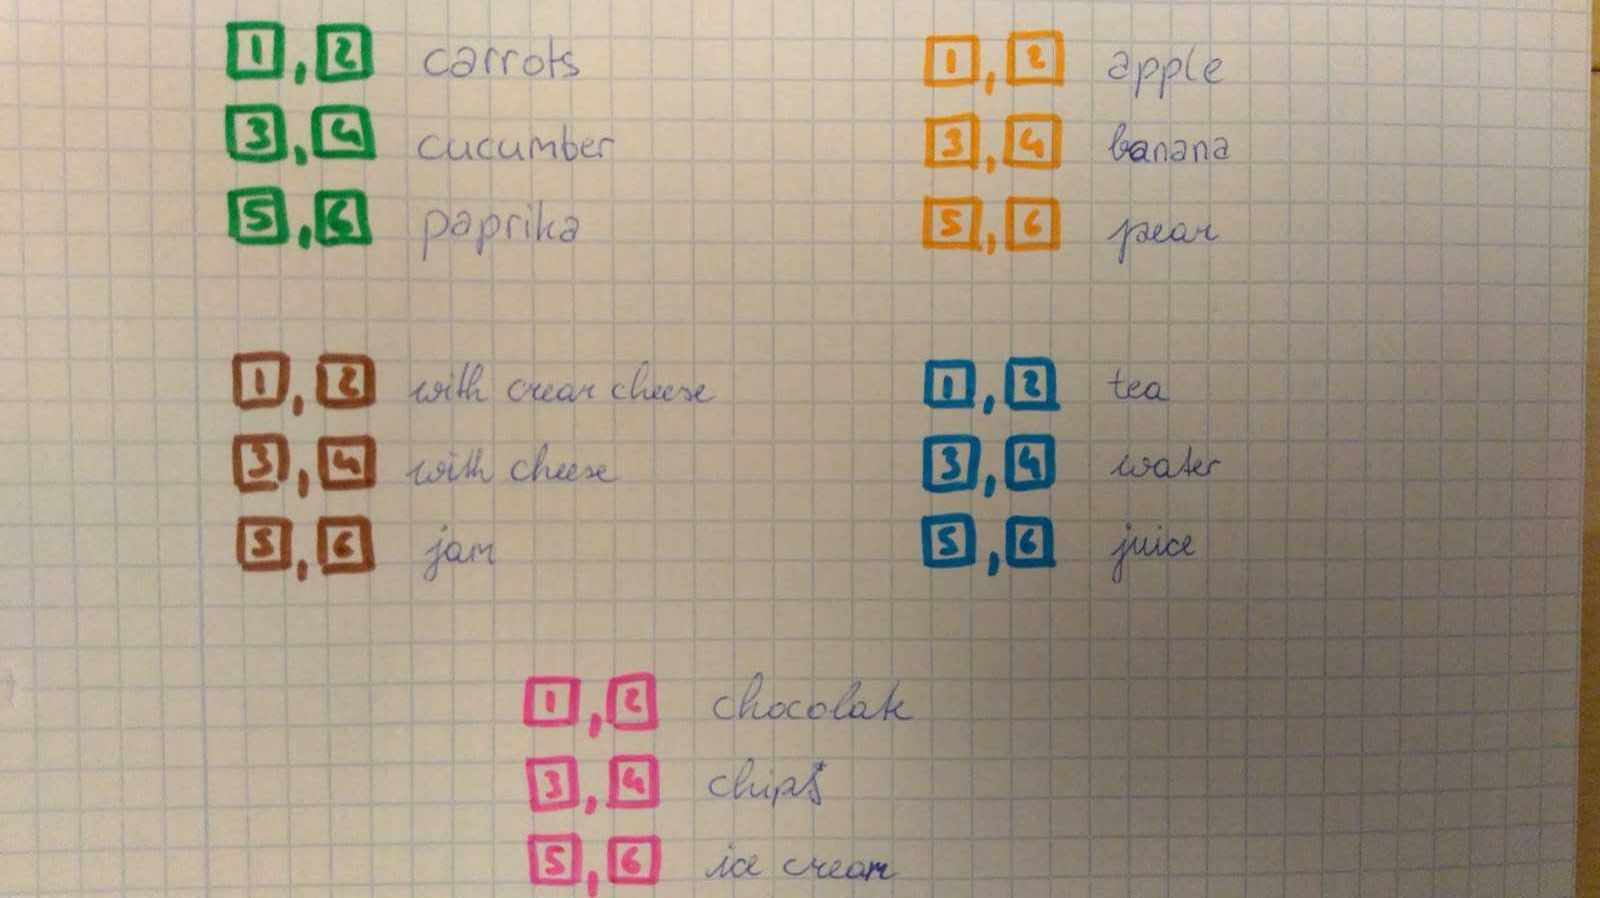 1, 2 carrots
3, 4 cucumber
5, 6 paprika
1, 2 apple
3, 4 banana
5, 6 pear
1, 2 with cream cheese
3, 4 with cheese
5, 6 jam
1, 2 tea
3, 4 water
5, 6 juice
1, 2 chocolate
3, 4 chips
5, 6 ice cream